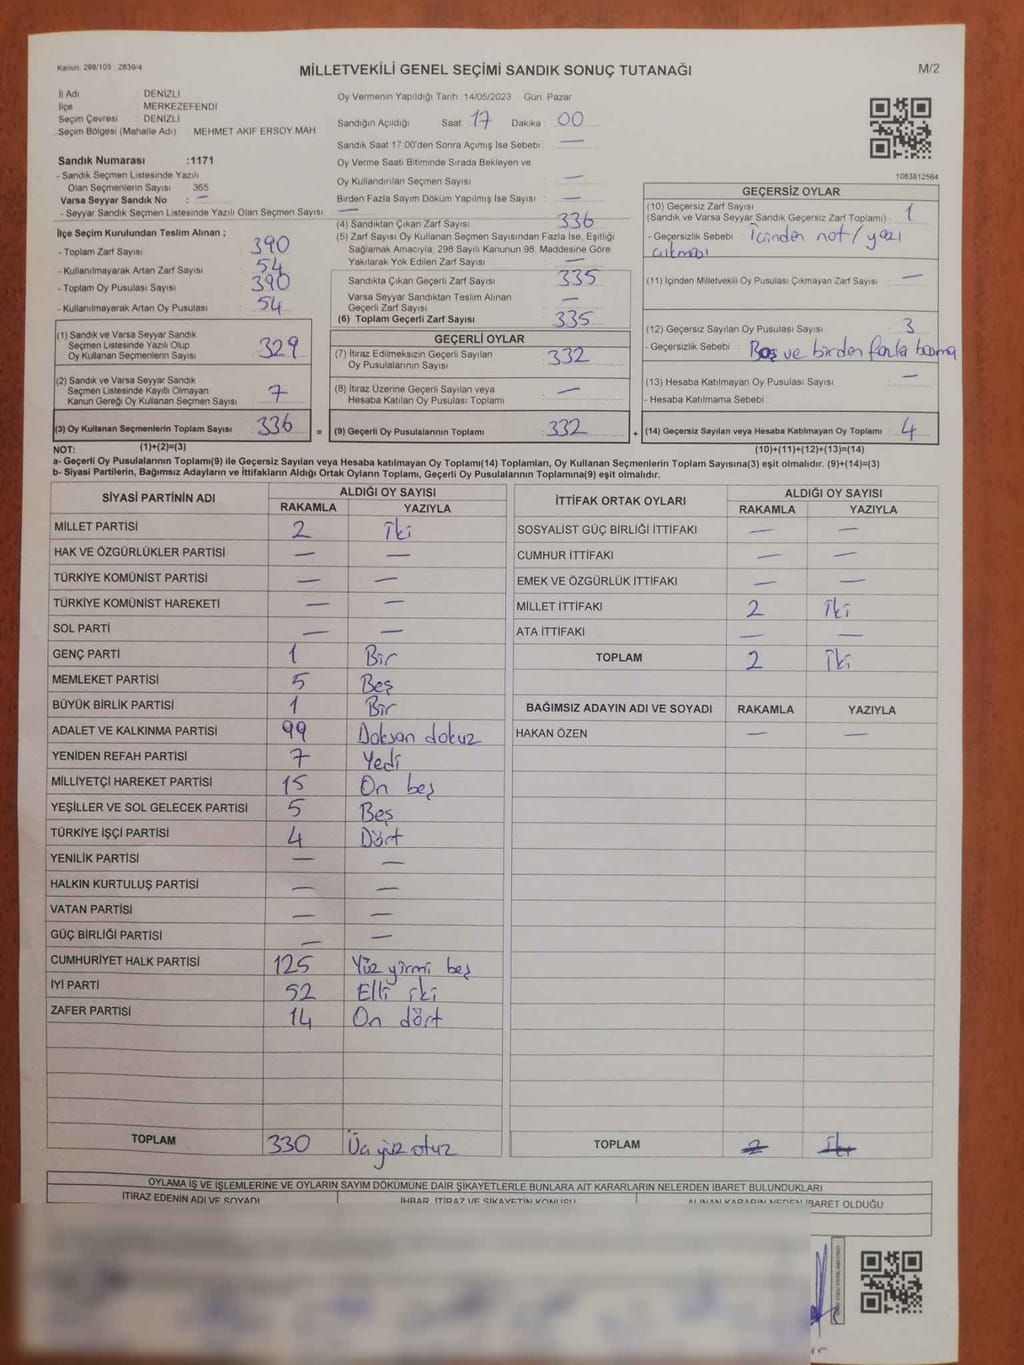 Kanun: 298/105 2839/4
MİLLETVEKİLİ GENEL SEÇİMİ SANDIK SONUÇ TUTANAĞI
M/2
İl Adı : DENİZLİ
İlçe : MERKEZEFENDİ
Seçim Çevresi : DENİZLİ
Seçim Bölgesi (Mahalle Adı) : MEHMET AKİF ERSOY MAH
Sandık Numarası :1171
- Sandık Seçmen Listesinde Yazılı
Olan Seçmenlerin Sayısı 365
Varsa Seyyar Sandık No : —
- Seyyar Sandık Seçmen Listesinde Yazılı Olan Seçmen Sayısı : —
İlçe Seçim Kurulundan Teslim Alınan ;
- Toplam Zarf Sayısı 390
- Kullanılmayarak Artan Zarf Sayısı 54
- Toplam Oy Pusulası Sayısı 390
- Kullanılmayarak Artan Oy Pusulası 54
(1) Sandık ve Varsa Seyyar Sandık
Seçmen Listesinde Yazılı Olup
Oy Kullanan Seçmenlerin Sayısı 329
(2) Sandık ve Varsa Seyyar Sandık
Seçmen Listesinde Kayıtlı Olmayan
Kanun Gereği Oy Kullanan Seçmen Sayısı 7
(3) Oy Kullanan Seçmenlerin Toplam Sayısı 336
Oy Vermenin Yapıldığı Tarih : 14/05/2023 Gün: Pazar
Sandığın Açıldığı Saat 17 Dakika : 00
Sandık Saat 17:00'den Sonra Açımış İse Sebebi : —
Oy Verme Saati Bitiminde Sırada Bekleyen ve
Oy Kullandırılan Seçmen Sayısı —
Birden Fazla Sayım Döküm Yapılmış İse Sayısı : —
(4) Sandıktan Çıkan Zarf Sayısı 336
(5) Zarf Sayısı Oy Kullanan Seçmen Sayısından Fazla İse, Eşitliği
Sağlamak Amacıyla, 298 Sayılı Kanunun 98. Maddesine Göre
Yakılarak Yok Edilen Zarf Sayısı —
Sandıkta Çıkan Geçerli Zarf Sayısı 335
Varsa Seyyar Sandıktan Teslim Alınan
Geçerli Zarf Sayısı —
(6) Toplam Geçerli Zarf Sayısı 335
GEÇERLİ OYLAR
(7) İtiraz Edilmeksizin Geçerli Sayılan
Oy Pusulalarının Sayısı 332
(8) İtiraz Üzerine Geçerli Sayılan veya
Hesaba Katılan Oy Pusulası Toplamı —
= (9) Geçerli Oy Pusulalarının Toplamı 332
1083812564
GEÇERSİZ OYLAR
(10) Geçersiz Zarf Sayısı
(Sandık ve Varsa Seyyar Sandık Geçersiz Zarf Toplamı) : 1
- Geçersizlik Sebebi : İçinden not/yazı
çıkması
(11) İçinden Milletvekili Oy Pusulası Çıkmayan Zarf Sayısı —
(12) Geçersiz Sayılan Oy Pusulası Sayısı 3
- Geçersizlik Sebebi : Boş ve birden fazla basma
(13) Hesaba Katılmayan Oy Pusulası Sayısı —
- Hesaba Katılmama Sebebi
+ (14) Geçersiz Sayılan veya Hesaba Katılmayan Oy Toplamı 4
NOT: (1)+(2)=(3) (10)+(11)+(12)+(13)=(14)
a- Geçerli Oy Pusulalarının Toplamı(9) ile Geçersiz Sayılan veya Hesaba katılmayan Oy Toplamı(14) Toplamları, Oy Kullanan Seçmenlerin Toplam Sayısına(3) eşit olmalıdır. (9)+(14)=(3)
b- Siyasi Partilerin, Bağımsız Adayların ve İttifakların Aldığı Ortak Oyların Toplamı, Geçerli Oy Pusulalarının Toplamına(9) eşit olmalıdır.
SİYASİ PARTİNİN ADI ALDIĞI OY SAYISI
RAKAMLA YAZIYLA
MİLLET PARTİSİ 2 iki
HAK VE ÖZGÜRLÜKLER PARTİSİ — —
TÜRKİYE KOMÜNİST PARTİSİ — —
TÜRKİYE KOMÜNİST HAREKETİ — —
SOL PARTİ — —
GENÇ PARTİ 1 Bir
MEMLEKET PARTİSİ 5 Beş
BÜYÜK BİRLİK PARTİSİ 1 Bir
ADALET VE KALKINMA PARTİSİ 99 Doksan dokuz
YENİDEN REFAH PARTİSİ 7 Yedi
MİLLİYETÇİ HAREKET PARTİSİ 15 On beş
YEŞİLLER VE SOL GELECEK PARTİSİ 5 Beş
TÜRKİYE İŞÇİ PARTİSİ 4 Dört
YENİLİK PARTİSİ — —
HALKIN KURTULUŞ PARTİSİ — —
VATAN PARTİSİ — —
GÜÇ BİRLİĞİ PARTİSİ — —
CUMHURİYET HALK PARTİSİ 125 Yüz yirmi beş
İYİ PARTİ 52 Elli iki
ZAFER PARTİSİ 14 On dört
TOPLAM 330 Üç yüz otuz
İTTİFAK ORTAK OYLARI ALDIĞI OY SAYISI
RAKAMLA YAZIYLA
SOSYALİST GÜÇ BİRLİĞİ İTTİFAKI — —
CUMHUR İTTİFAKI — —
EMEK VE ÖZGÜRLÜK İTTİFAKI — —
MİLLET İTTİFAKI 2 İki
ATA İTTİFAKI — —
TOPLAM 2 İki
BAĞIMSIZ ADAYIN ADI VE SOYADI RAKAMLA YAZIYLA
HAKAN ÖZEN — —
TOPLAM 2 İki
OYLAMA İŞ VE İŞLEMLERİNE VE OYLARIN SAYIM DÖKÜMÜNE DAİR ŞİKAYETLERLE BUNLARA AİT KARARLARIN NELERDEN İBARET BULUNDUKLARI
İTİRAZ EDENİN ADI VE SOYADI İHBAR, İTİRAZ VE ŞİKAYETİN KONUSU ALINAN KARARIN NEDEN İBARET OLDUĞU